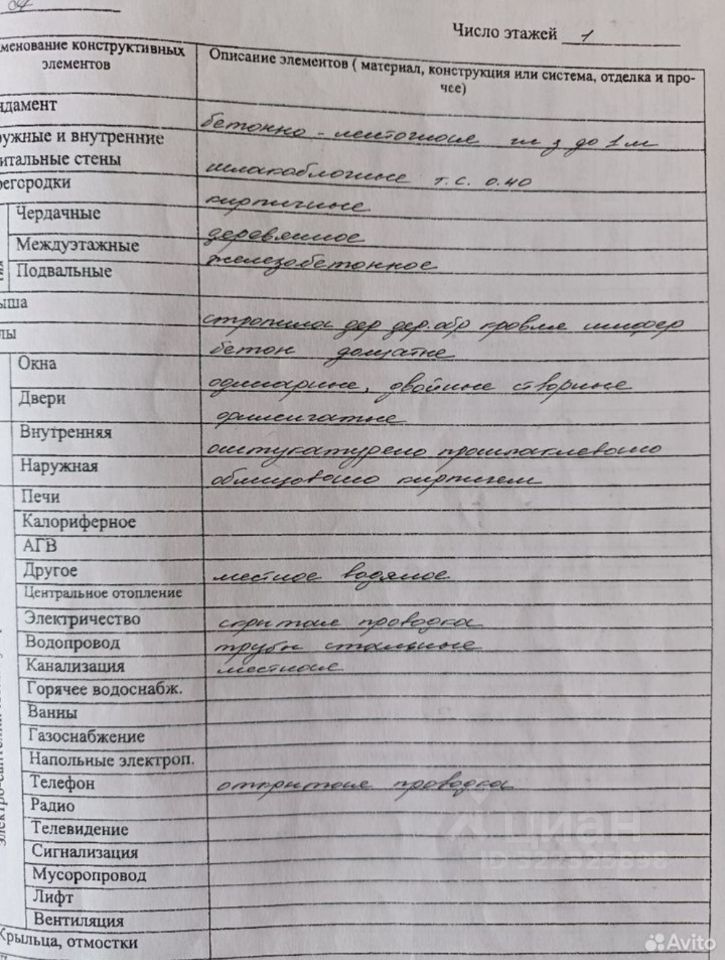 А
Число этажей 1
менование конструктивных элементов
Описание элементов ( материал, конструкция или система, отделка и про-
чее)
ндамент
бетонно - ленточное гл з до 1 м
ружные и внутренние
итальные стены
шлакоблочные т.с. 0.40
регородки
кирпичные
Чердачные
деревянное
Междуэтажные
железобетонное
Подвальные
ыша
стропила дер дер.обр кровля шифер
лы
бетон дощатые
Окна
одинарные, двойные створные
Двери
филенчатые
Внутренняя
оштукатурено прошпаклевано
Наружная
облицовано кирпичем
Печи
Калориферное
АГВ
Другое
местное водяное
Центральное отопление
Электричество
скрытая проводка
Водопровод
трубы стальные
Канализация
местная
Горячее водоснабж.
Ванны
Газоснабжение
Напольные электроп.
Телефон
открытая проводка
Радио
Телевидение
Сигнализация
Мусоропровод
Лифт
Вентиляция
Крыльца, отмостки
циан
Avito